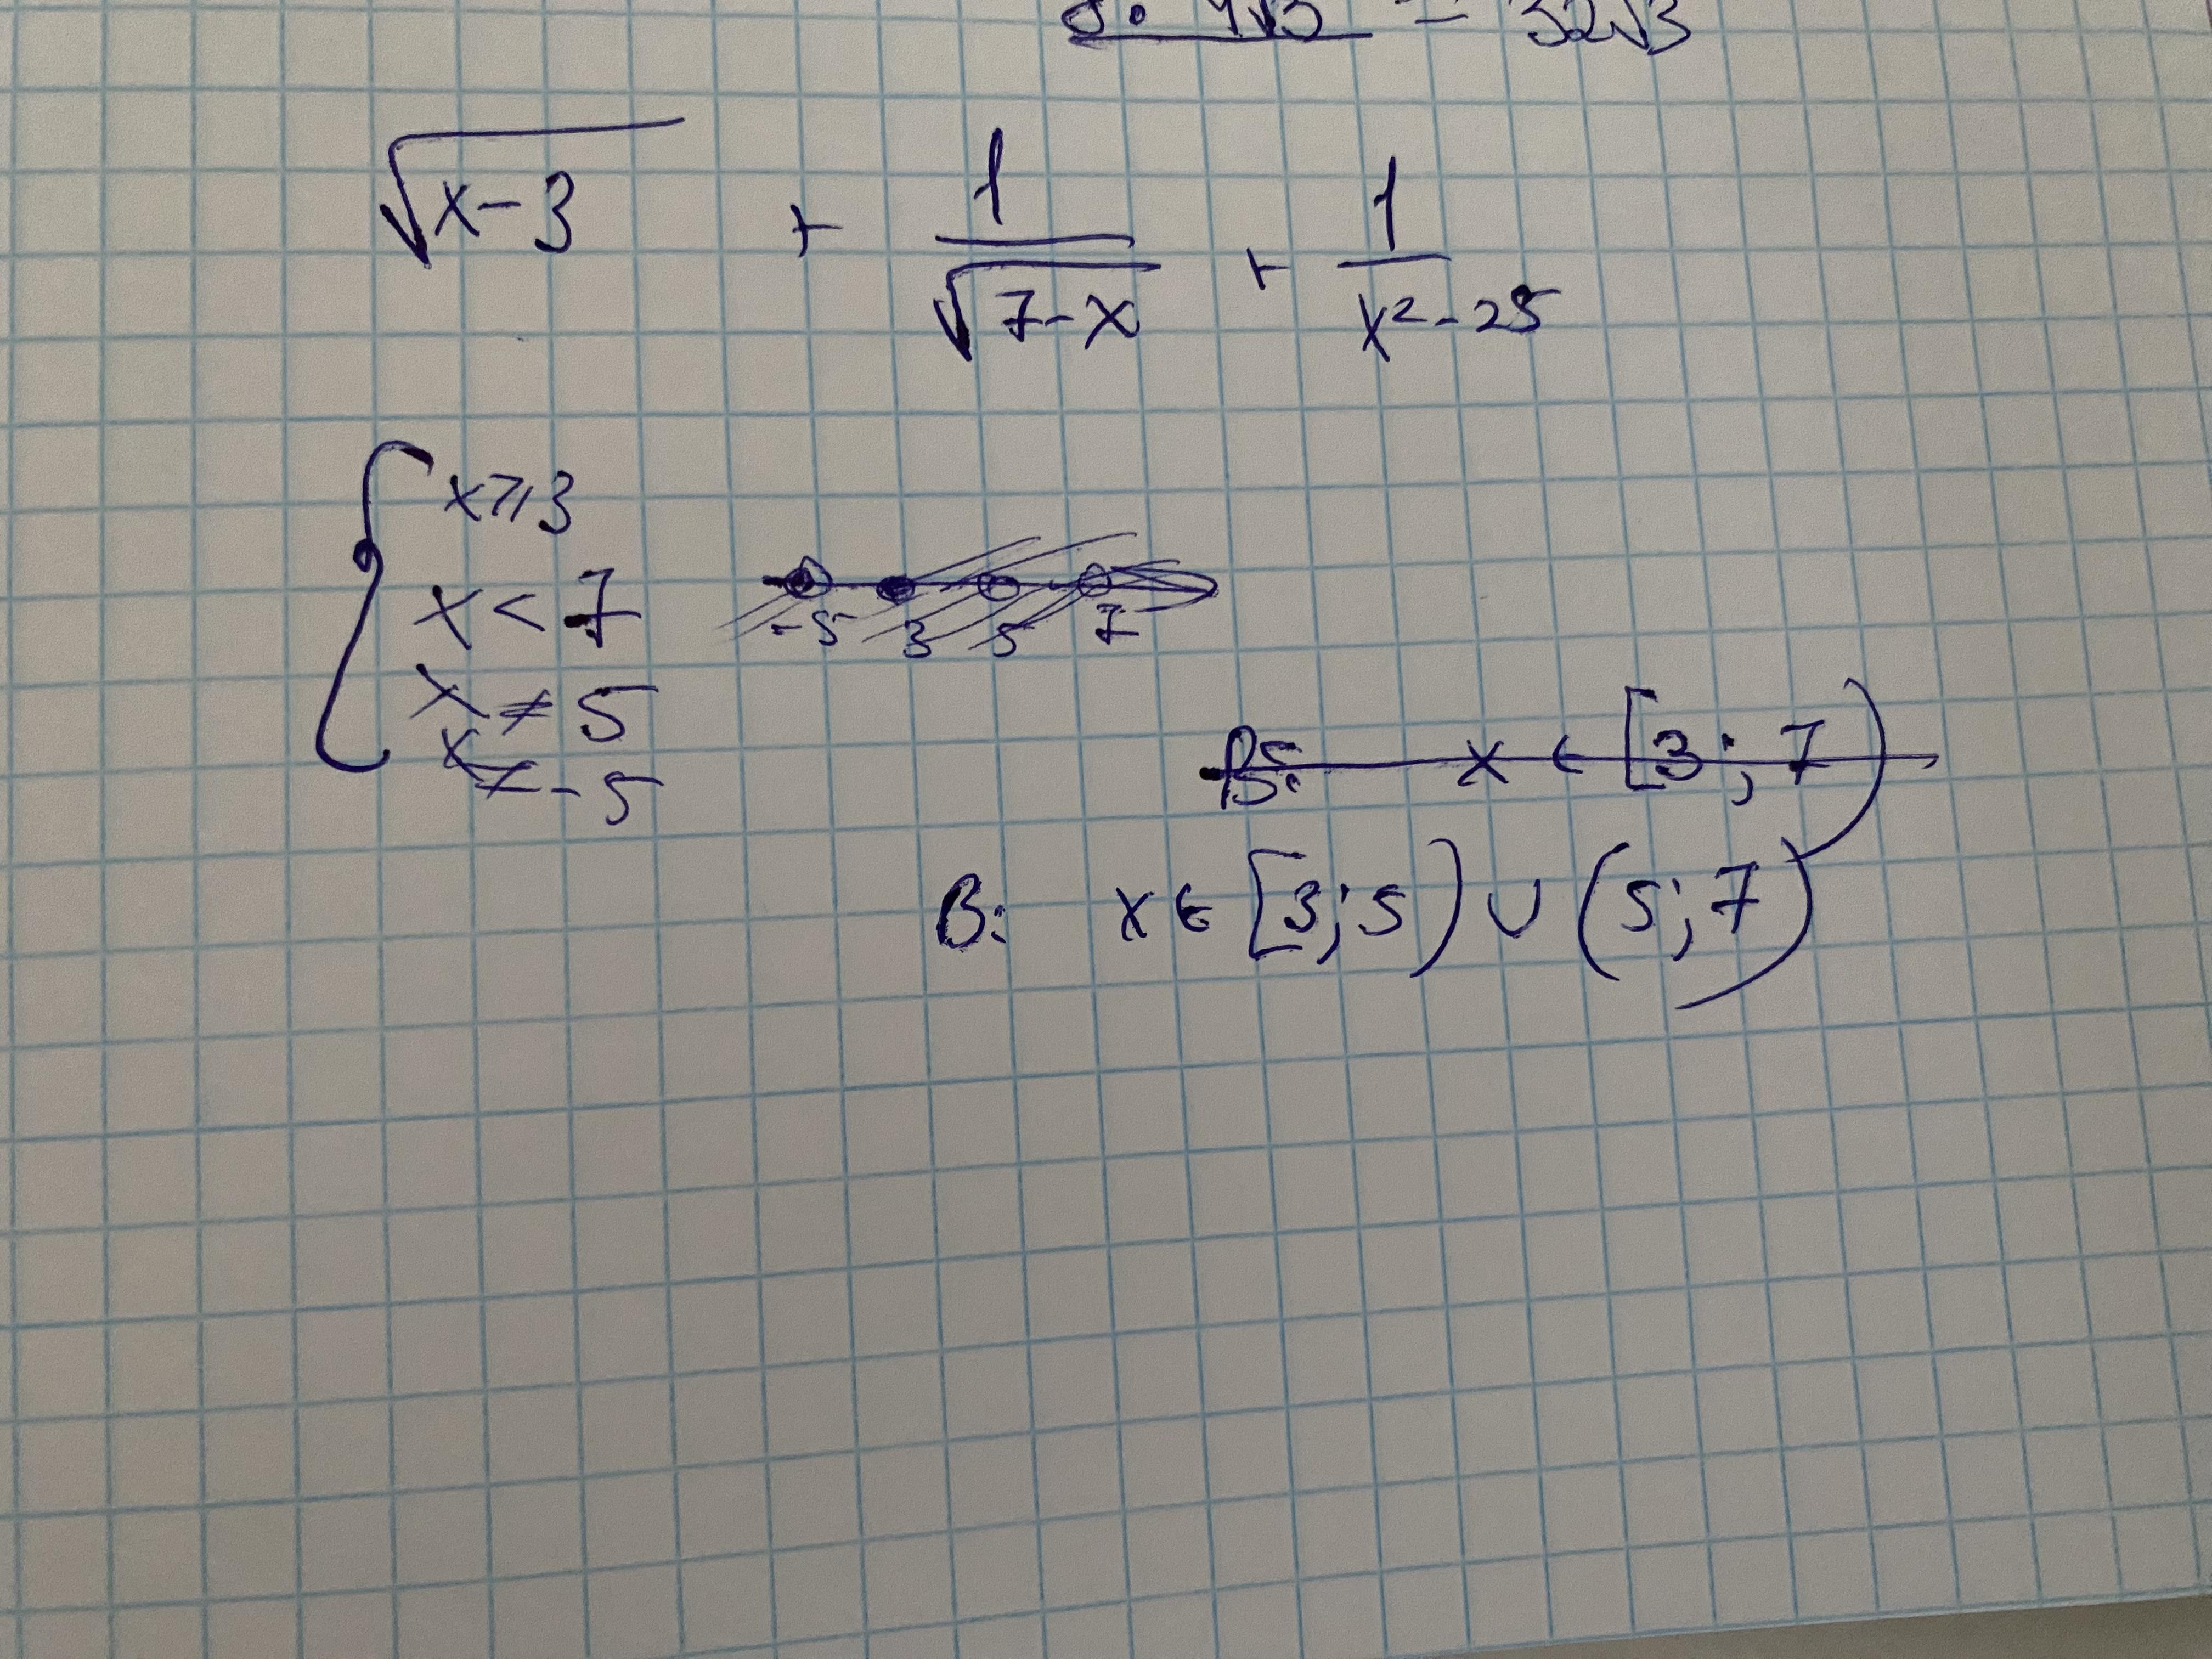 = 32√3
√x-3 + 1/√7-x + 1/x²-25
{ x⩾3
x < 7
x ≠ 5
x ≠ -5
-5 3 5 7
x ∈ [3; 7)
B: x ∈ [3; 5) ∪ (5; 7)